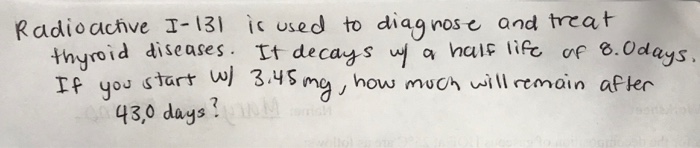 Radioactive I-131 is used to diagnose and treat
thyroid diseases. It decays w/ a half life of 8.0days.
If you start w/ 3.45 mg, how much will remain after
43,0 days?